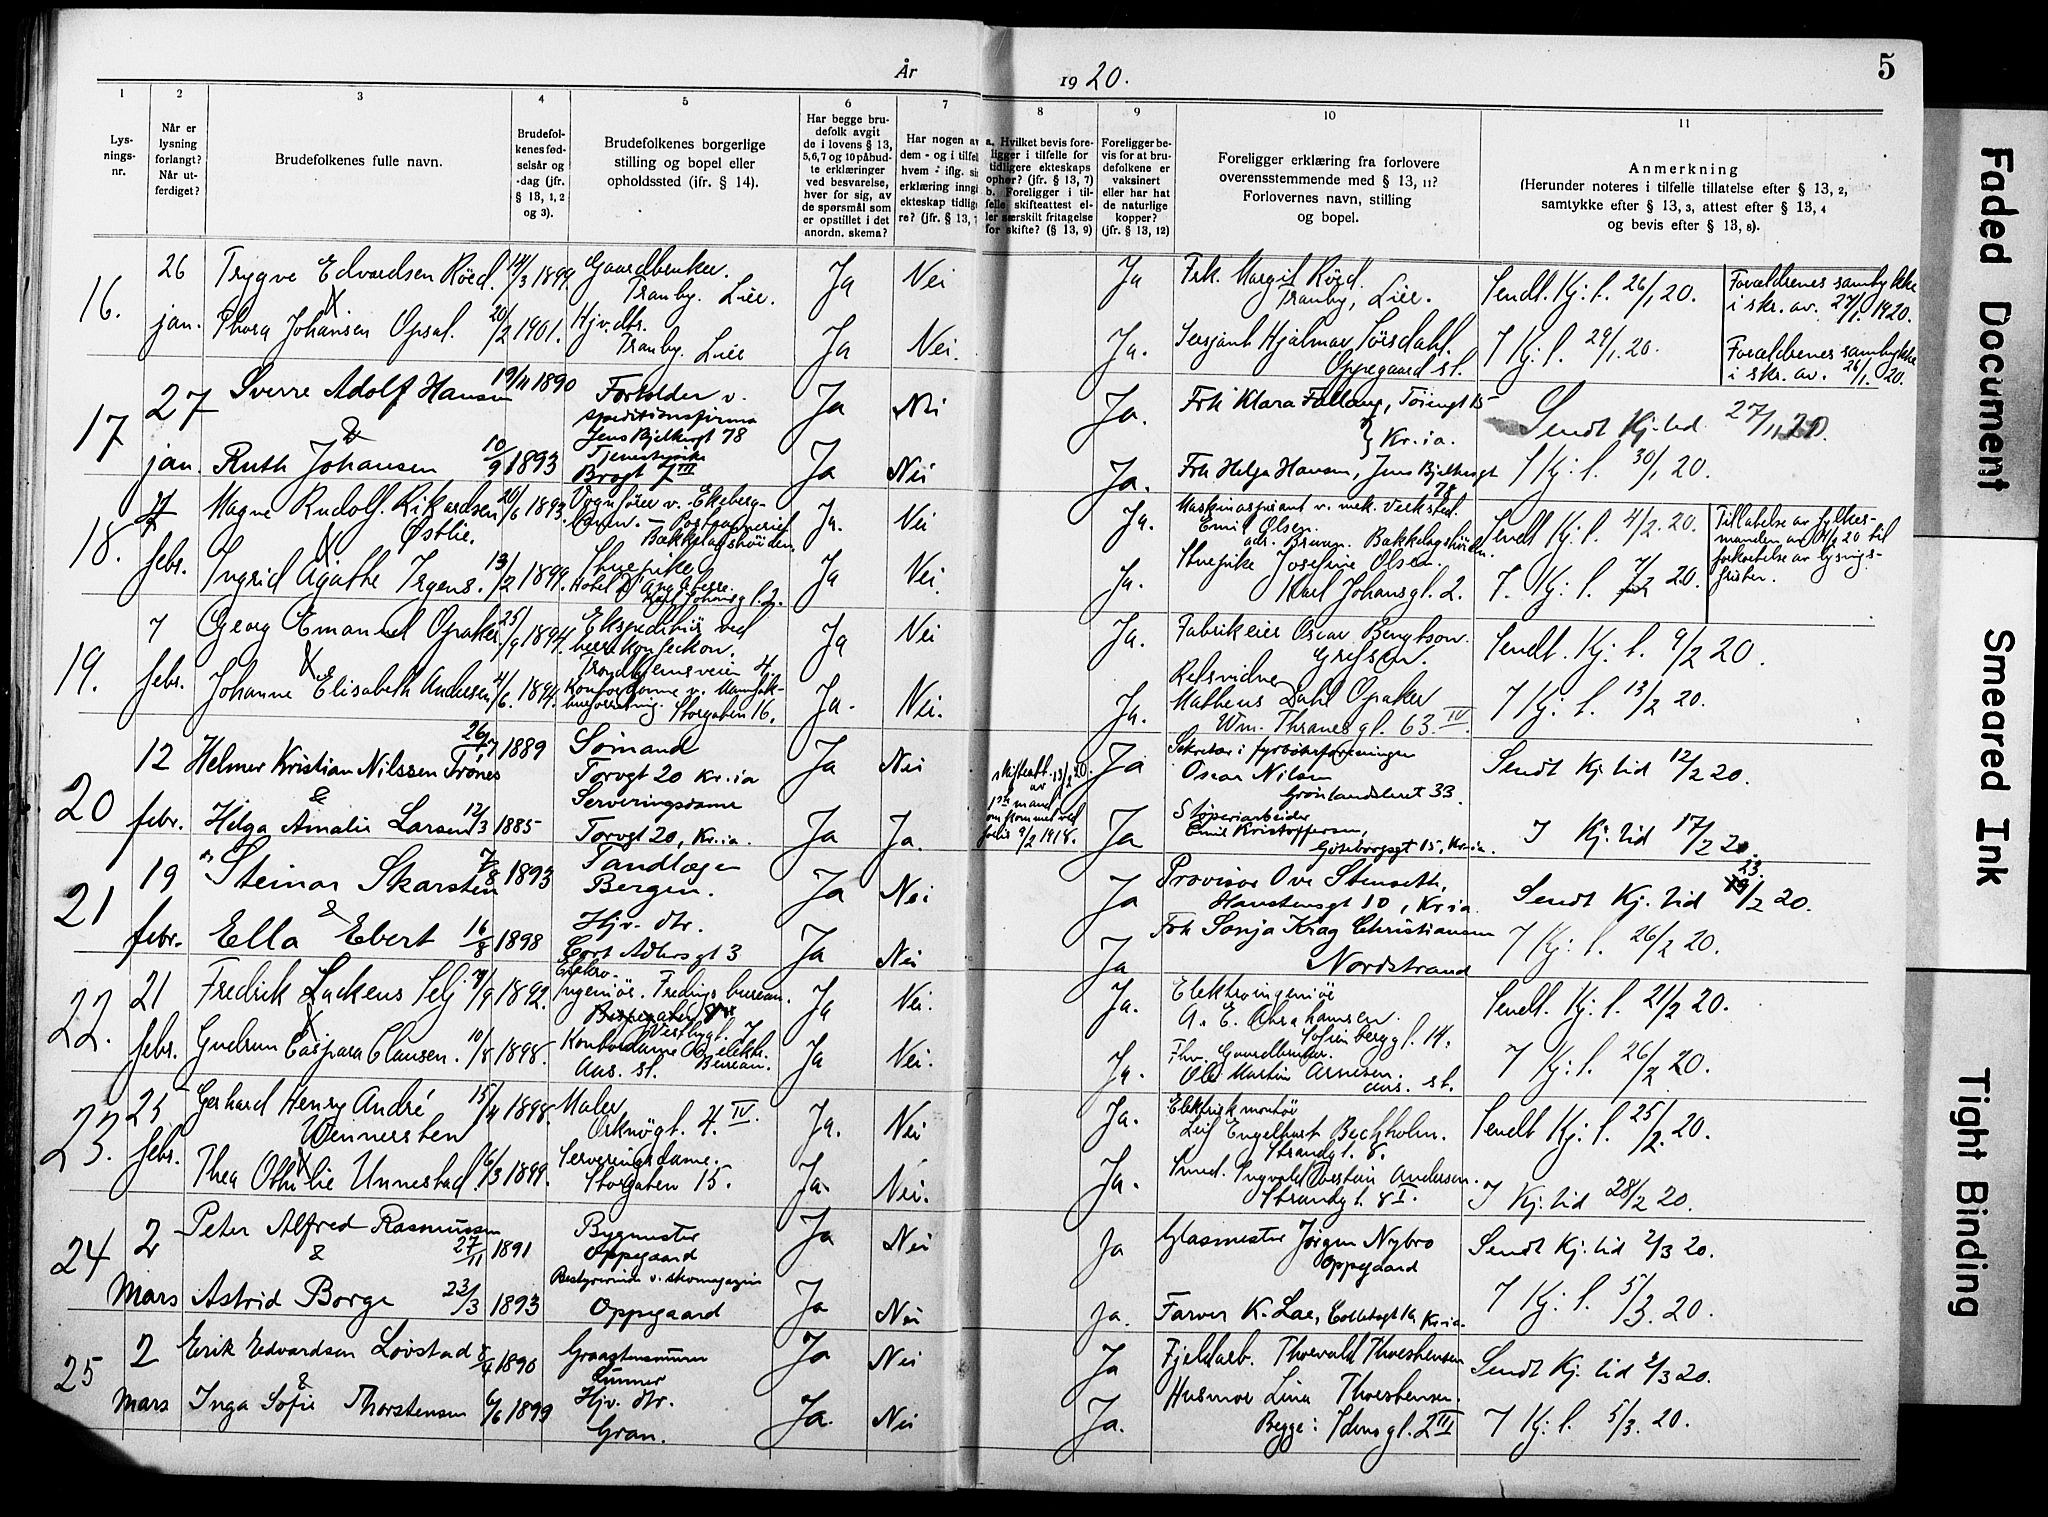 År 1920.
5
1
2
3
4
5
6
7
8
9
10
11
Lys-
nings-
nr.
Når er
lysning
forlangt?
Når ut-
ferdiget?
Brudefolkenes fulle navn.
Brudefol-
kenes fød-
selsår og
-dag (jfr.
§ 13, 1, 2
og 3).
Brudefolkenes borgerlige
stilling og bopel eller
opholdssted (ifr. § 14).
Har begge bru-
defolk avgit
de i lovens § 13,
5,6,7 og 10 påbud-
te erklæringer
ved besvarelse,
hver for sig, av
de spørsmål som
er opstillet i det
anordn. skema?
Har nogen av
dem - og i tilfel
hvem - iflg. si
erklæring inngi
ekteskap tidlig
re? (jfr. § 13,
a. Hvilket bevis fore-
ligger i tilfelle for
tidligere ekteskaps
ophør? (jfr. § 13, 7)
b. Foreligger i til-
felle skifteattest el-
ler særskilt fritagelse
for skifte? (§ 13, 9)
Foreligger be-
vis for at bru-
defolkene er
vaksinert
eller har hat
de naturlige
kopper?
(jfr. § 13, 12)
Foreligger erklæring fra forlovere
overensstemmende med § 13, 11?
Forlovernes navn, stilling
og bopel.
Anmerkning
(Herunder noteres i tilfelle tillatelse efter § 13, 2,
samtykke efter § 13, 3, attest efter § 13, 4
og bevis efter § 13, 8).
16.
26
jan.
Trygve Edvardsen Röed. 14/3 1899
Gaardbruker.
Tranby. Lier.
Ja
Nei
Ja
Frk. Margit Röed.
Tranby, Lier.
Sendt. Kj. t. 26/1 20.
Forældrenes samtykke
i skr. av. 27/1 1920.
&
Thora Johansen Opsal. 20/2 1901.
Hjv. dtr.
Tranby. Lier
Ja
Nei.
Ja.
Sersjant Hjalmar Sörsdahl.
Oppegaard st.
7 Kj. t. 29/1. 20.
Forældrenes samtykke
i skr. av. 26/1. 20.
17
27
jan.
Sverre Adolf Hansen 19/11 1890
Forholder v.
speditionsfirma
Jens Bjelkesgt 78
Ja
Nei
Ja.
Frk Klara Fallang, Töiengt 15
Kr.ia.
Sendt Kj. tid 27/1 20.
&
Ruth Johansen 10/9 1893
Tjenestepike
Brogt 7 III
Ja
Nei
Ja.
Frk Helga Hansen, Jens Bjelkesgt
78
7 Kj: t. 30/1 20.
18.
4
febr.
Magne Rudolf. Rikardsen 20/6 1893.
Østlie.
Vognförer v. Ekeberg-
banen. -
Bækkelagshöiden.
Ja.
Nei
Ja.
Maskinaspirant v. mek. Verksted.
Emil Olsen.
adr. Bækkelagshöiden.
Sendt Kj. t. 4/2. 20.
Tillatelse av fylkes-
manden av 4/2 20 til
forkortelse av lysnings-
fristen.
&
Ingrid Agathe Irgens. 13/2 1899.
Stuepike
Hotel d'Angleterre.
Karl Johansgt. 2.
Ja
Nei.
Ja.
Stuepike Josefine Olsen.
Karl Johansgt. 2.
7. Kj: t. 7/2 20.
19.
7
febr.
Georg Emanuel Opaker. 25/9 1894.
Ekspeditör ved
herrekonfeckon.
Trondhjemsveien 4.
Ja
Nei
Ja.
Fabrikeier Oscar Bengtson.
Grefsen.
Sendt. Kj. t. 9/2 20.
&
Johanne Elisabeth Andersen 4/6. 1894.
Kontordame v. Manufak-
turforretning. Storgaten 16.
Ja.
Nei.
Ja.
Retsvidne
Matheus Dahl Opaker
Wm. Thranesgt. 63. IV
7 Kj. t. 13/2 20.
20
12
febr.
Helmer Kristian Nilssen Trones 26/7 1889
Sömand
Torvgt 20 Kr.ia
Ja
Nei
Ja
Sekretær i fyrböterforeningen
Oscar Nilsen
Grönlandsleret 33.
Sendt Kj. tid 12/2 20.
&
Helga Amalie Larsen 12/3 1885
Serveringsdame
Torvgt 20, Kr.ia.
Ja
Ja.
skifteatt. 13/2 20.
av
1ste mand
omkommet ved
forlis 9/2 1918.
Ja
Støperiarbeider
Emil Kristoffersen,
Göteborgsgt 15, Kr.ia.
7 Kj. tid 17/2 20.
21
19
febr.
Steinar Skarsten 7/8 1893
Tandlæge
Bergen.
Ja
Nei
Ja
Provisor Ove Stenseth,
Hanstensgt 10, Kr.ia
Sendt Kj. tid 23/2 20.
&
Ella Ebert 16/8 1898
Hjv. dtr.
Cort Adlersgt 3
Ja
Nei
Ja
Frk Sonja Krag Christiansen
Nordstrand
7 Kj: t. 26/2 20.
22.
21
febr.
Fredrik Lackens Selj /9 1892.
Elektro.
Ingeniör. Fredings bureau.
Ja
Nei.
Ja.
Elektroingeniör
A. E. Abrahamsen.
Sofienberggt. 14.
Sendt. Kj. t. 21/2 20.
&
Gudrun Caspara Clausen. 10/8 1898.
Kontordame elektr.
Aas. st. Bureau.
Ja
Nei.
Ja.
Fhv. Gaardbruker.
Ole Martin Arnesen.
aas. st.
7 Kj: t. 26/2 20.
23.
25
febr.
Gerhard Henry André 15/4 1898.
Wennersten
Maler
Orknögt. 4. IV.
Ja.
Nei
Ja.
Elektrisk montör
Leif Engelhart Bechholm.
Strandgt. 8.
Sendt Kj. t. 25/2. 20.
&
Thea Othilie Unnestad. 6/3 1899.
Serveringsdame.
Storgaten 15.
Ja.
Nei.
Ja.
Smed. Ingvald Andersen.
Strandgt. 8 I.
7 Kj. tid 28/2 20.
24
2
Mars
Peter Alfred Rasmussen
27/11 1891
Bygmester
Oppegaard
Ja
Nei
Ja
Glasmester Jørgen Nybro
Oppegaard
Sendt Kj. tid 2/3 20.
&
Astrid Borge 23/3 1893
Bestyrerinde v. skomagazin
Oppegaard
Ja
Nei
Ja.
Farver K. Lae, Kr.ia.
7 Kj. t. 5/3. 20.
25
2
Mars
Erik Edvardsen Lövstad 8/4 1890
Graastensmurer
Lunner
Ja
Nei
Ja
Fjeldarb. Thorvald Thorstensen
Sendt Kj. tid 2/3 20.
&
Inga Sofie Thorstensen 6/6 1899
Hjv. dtr.
Gran.
Ja.
Nei
Ja.
Husmor Lina Thorstensen.
Begge: Idunsgt. 2 III
7 Kj. t. 5/3. 20.
Faded Document
Smeared Ink
Tight Binding